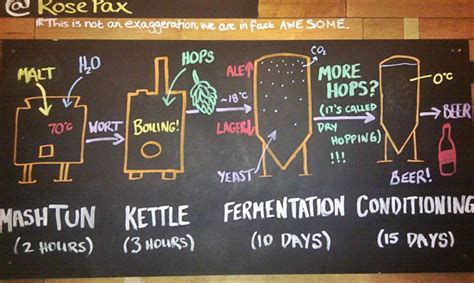 @ Rose Pax
*This is not an exaggeration, we are in fact AWESOME.
MALT
H₂O
70°C
WORT
HOPS
BOILING!
ALE↑
~18°C
LAGER↓
YEAST
CO₂
MORE
HOPS?
(IT'S CALLED
DRY
HOPPING)
!!!
0°C
BEER
BEER!
MASH TUN
(2 HOURS)
KETTLE
(3 HOURS)
FERMENTATION
(10 DAYS)
CONDITIONING
(15 DAYS)